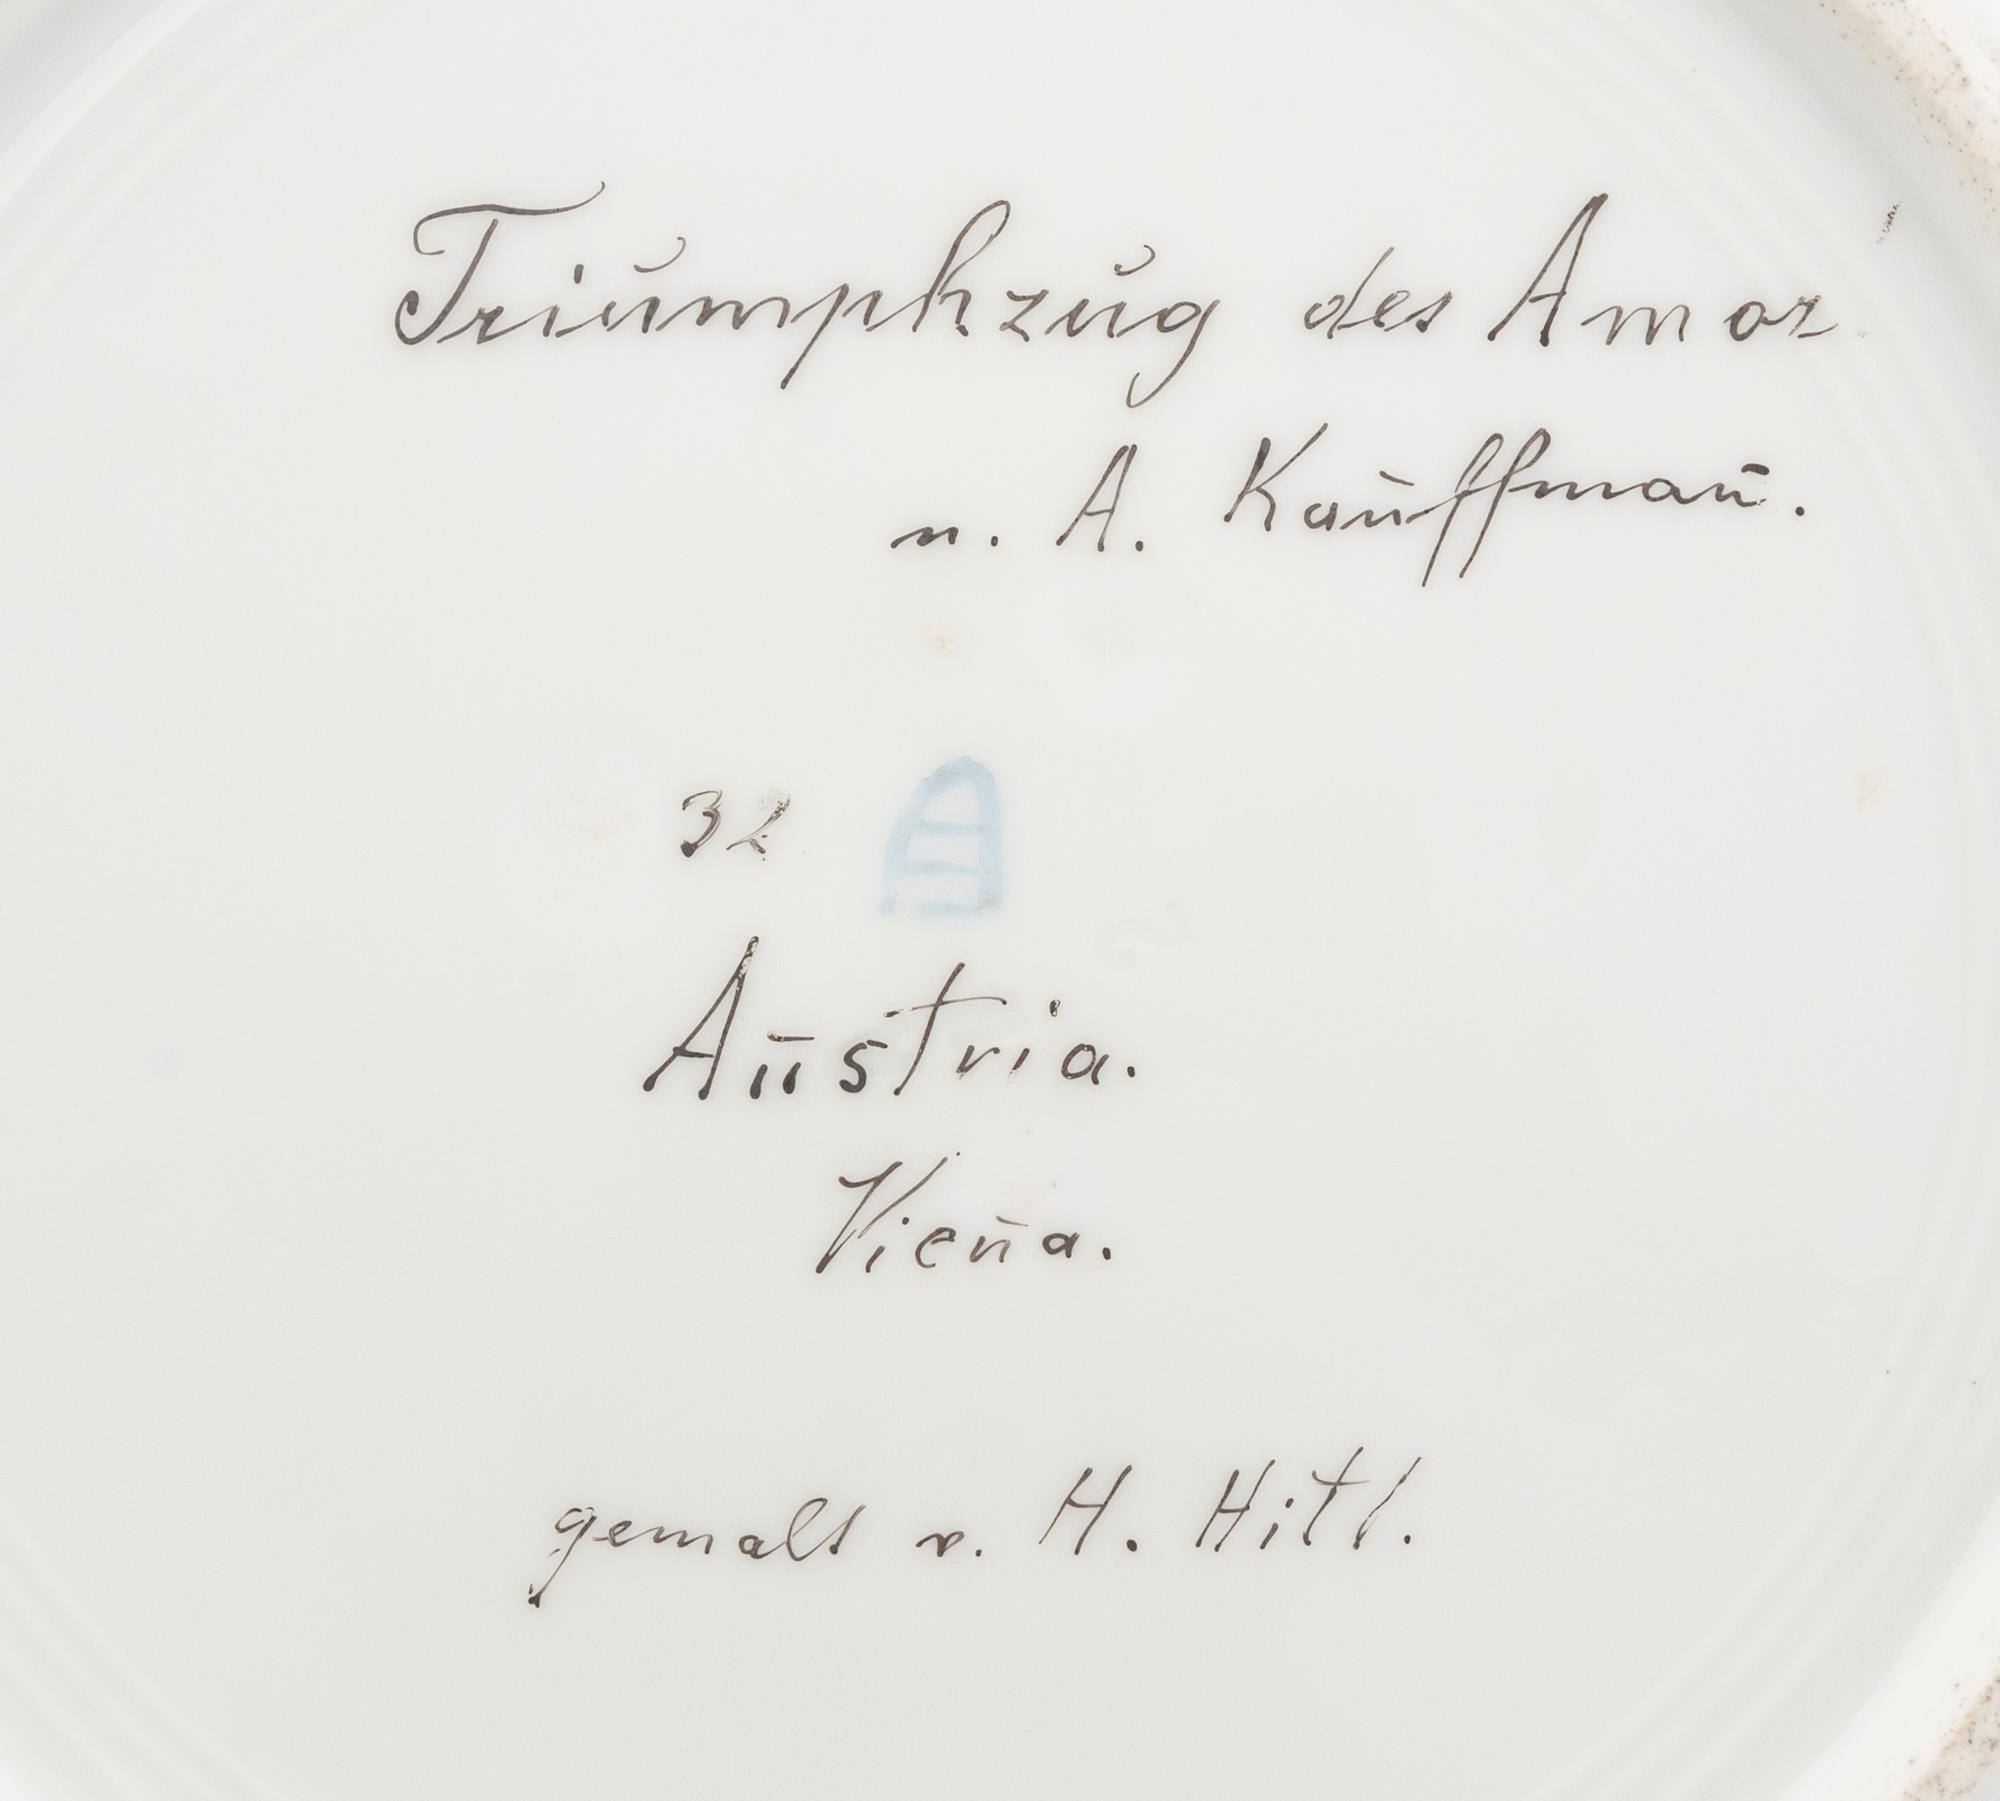 Triumphzug des Amor
n. A. Kauffmañ.
32
Austria.
Vieña.
gemalt v. H. Hitl.